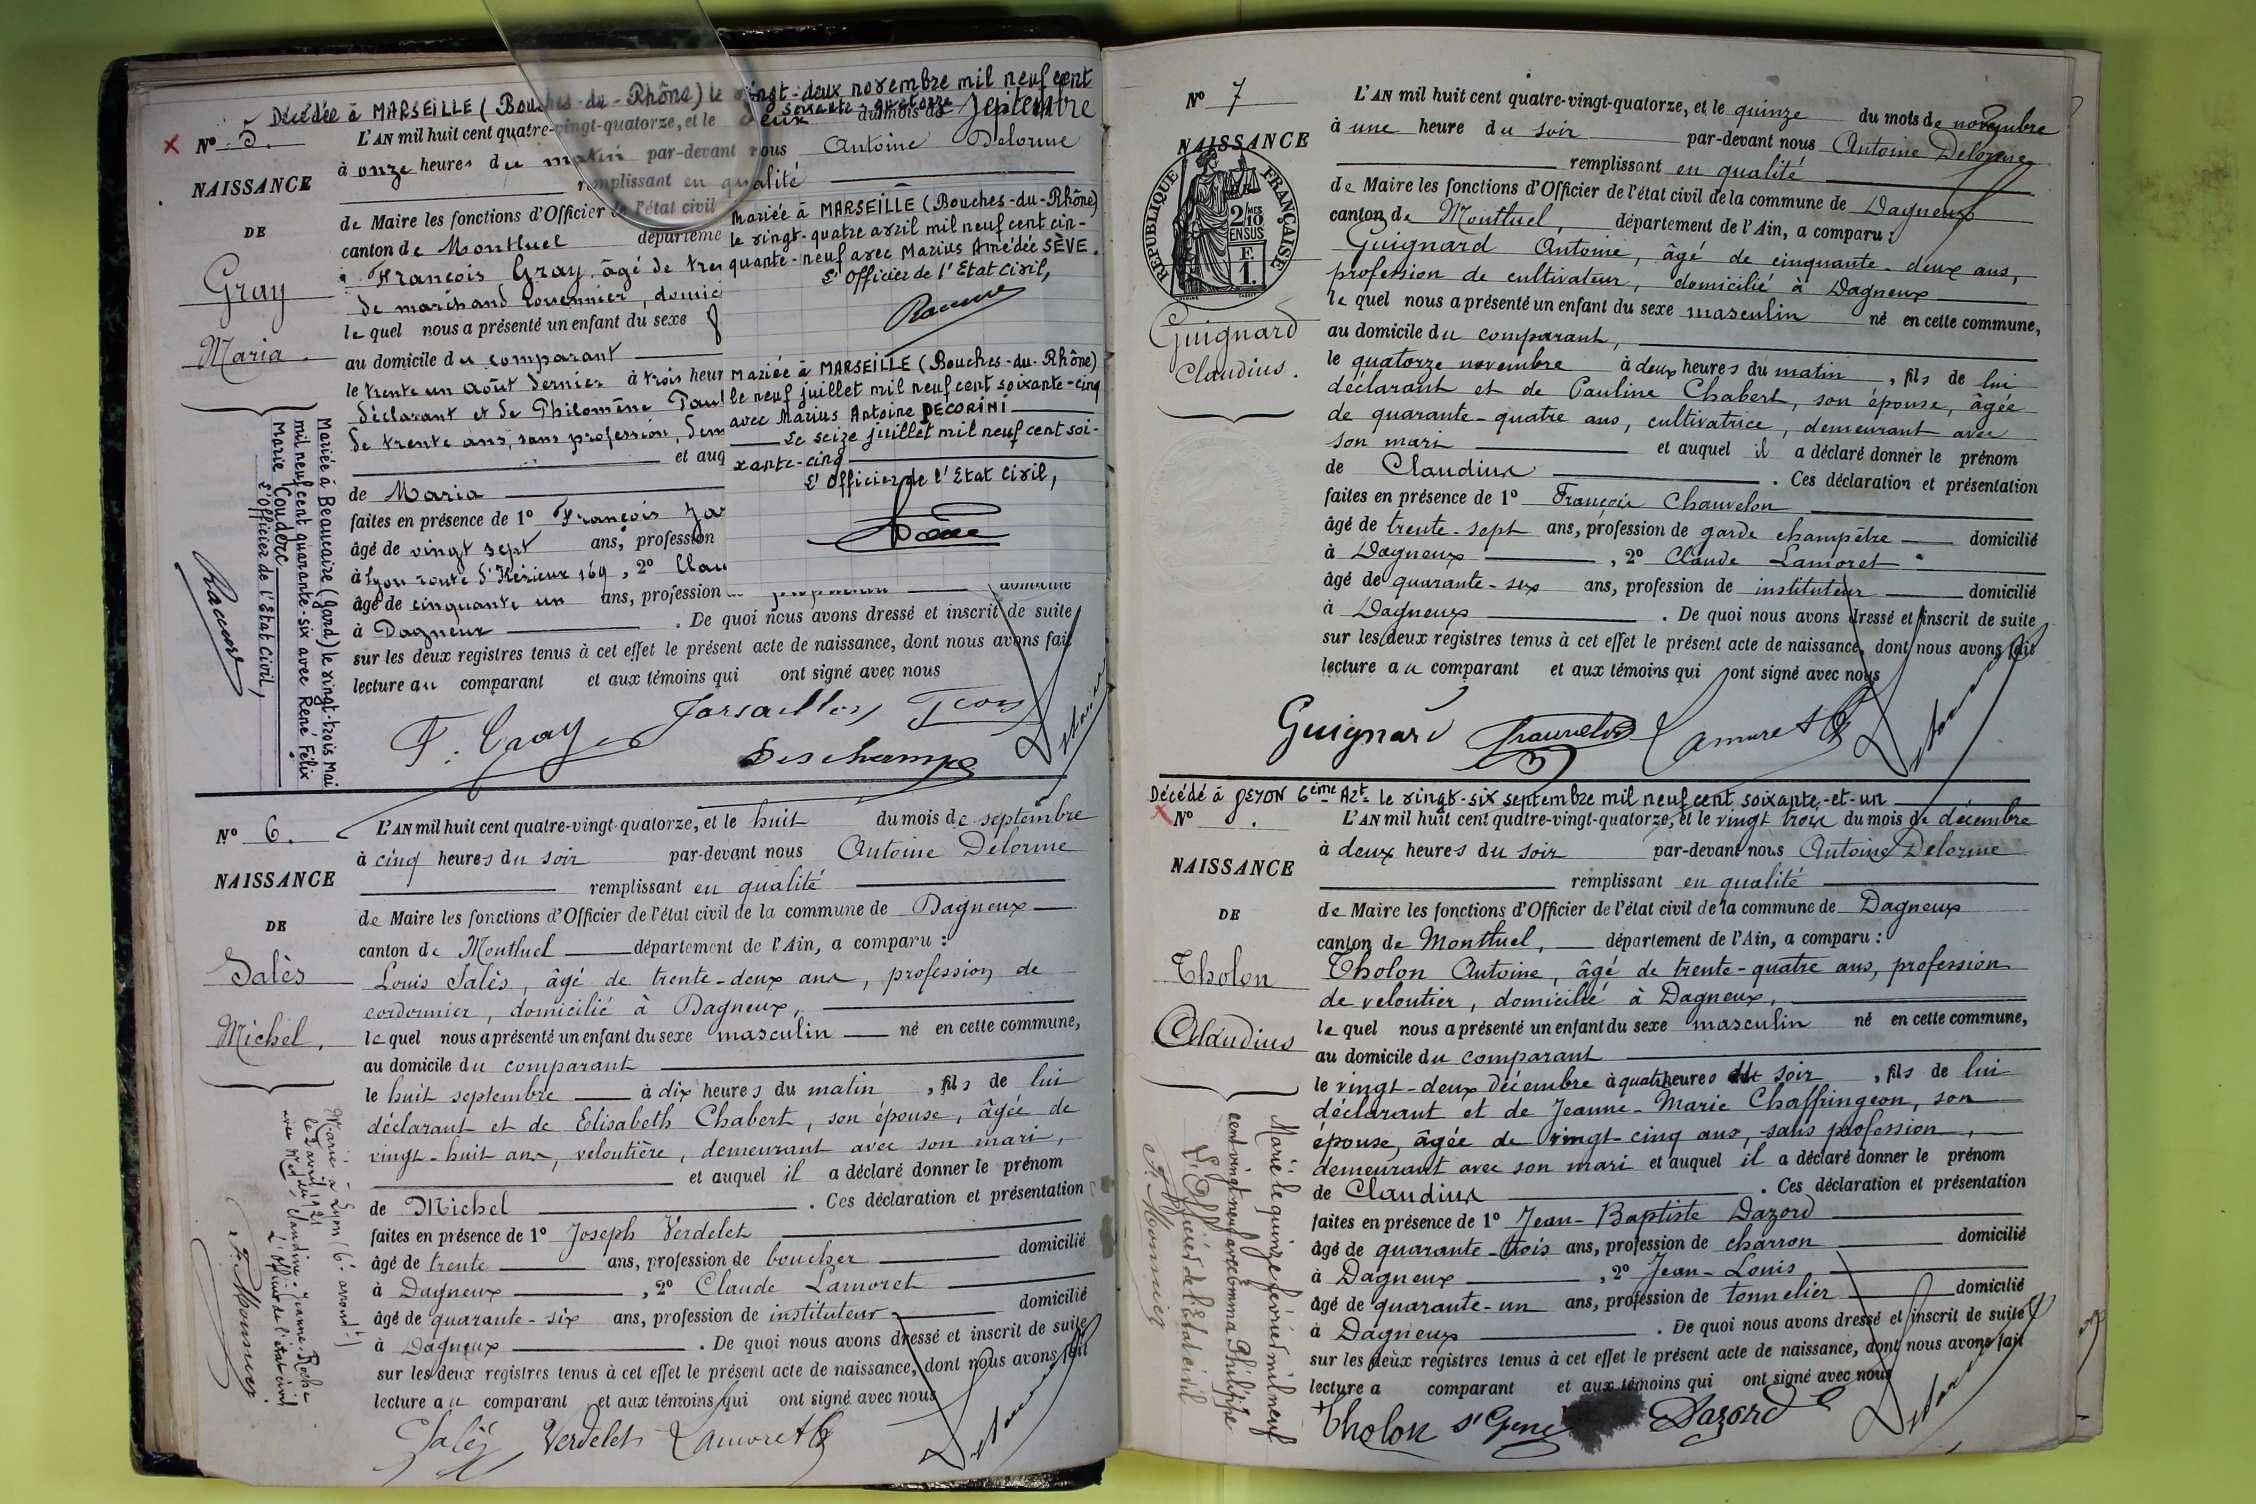 Décédée à MARSEILLE (Bouches-du-Rhône) le vingt-deux novembre mil neuf cent
soixante-quatorze
N° 5.
NAISSANCE
DE
Gray
Maria
L'AN mil huit cent quatre-vingt-quatorze, et le deux du mois de septembre
à onze heures du matin par-devant nous Antoine Delorme
remplissant en qualité
de Maire les fonctions d'Officier de l'état civil
canton de Montluel départeme
François Gray, âgé de tren
de marchand
le quel nous a présenté un enfant du sexe f
au domicile du comparant
le trente un août dernier à trois heur
déclarant et de Philomène Paul
de trente ans, sans profession, dem
et auq
de Maria
faites en présence de 1° François
âgé de vingt sept ans, profession
à Lyon route d'Hérieux 169, 2° Clau
âgé de cinquante un ans, profession domicilié
à Dagneux . De quoi nous avons dressé et inscrit de suite
sur les deux registres tenus à cet effet le présent acte de naissance, dont nous avons fait
lecture au comparant et aux témoins qui ont signé avec nous
F. Gray
Deschamps
Mariée à MARSEILLE (Bouches-du-Rhône)
le vingt-quatre avril mil neuf cent cin-
quante-neuf avec Marius Amédée SÈVE.
L'Officier de l'Etat Civil,
Mariée à MARSEILLE (Bouches-du-Rhône)
le neuf juillet mil neuf cent soixante-cinq
avec Marius Antoine PECORINI
Le seize juillet mil neuf cent soi-
xante-cinq
L'Officier de l'Etat Civil,
Mariée à Beaucaire (Gard) le vingt-trois Mai
mil neuf cent quarante-six avec René Félix
Marie Couderc
L'Officier de l'Etat Civil,
N° 6.
NAISSANCE
DE
Salès
Michel.
L'AN mil huit cent quatre-vingt-quatorze, et le huit du mois de septembre
à cinq heures du soir par-devant nous Antoine Delorme
remplissant en qualité
de Maire les fonctions d'Officier de l'état civil de la commune de Dagneux
canton de Montluel département de l'Ain, a comparu :
Louis Salès, âgé de trente-deux ans, profession de
cordonnier, domicilié à Dagneux,
le quel nous a présenté un enfant du sexe masculin né en cette commune,
au domicile du comparant
le huit septembre à dix heures du matin , fils de lui
déclarant et de Elisabeth Chabert, son épouse, âgée de
vingt-huit ans, veloutière, demeurant avec son mari,
et auquel il a déclaré donner le prénom
de Michel . Ces déclaration et présentation
faites en présence de 1° Joseph Verdelet
âgé de trente ans, profession de boucher domicilié
à Dagneux , 2° Claude Lamoret
âgé de quarante-six ans, profession de instituteur domicilié
à Dagneux . De quoi nous avons dressé et inscrit de suite
sur les deux registres tenus à cet effet le présent acte de naissance, dont nous avons fait
lecture au comparant et aux témoins qui ont signé avec nous
Salès Verdelet Lamoret
Marié à Lyon (6e arrondt)
le 2 avril 1921
avec Claudine-Jeanne Roche
L'Officier de l'état civil
F. Monnier
N° 7
NAISSANCE
RÉPUBLIQUE FRANÇAISE
2/10MES
EN SUS
F.
1.
Guignard
Claudius.
L'AN mil huit cent quatre-vingt-quatorze, et le quinze du mois de novembre
à une heure du soir par-devant nous Antoine Delorme
remplissant en qualité
de Maire les fonctions d'Officier de l'état civil de la commune de Dagneux
canton de Montluel, département de l'Ain, a comparu :
Guignard Antoine, âgé de cinquante-deux ans,
profession de cultivateur, domicilié à Dagneux
le quel nous a présenté un enfant du sexe masculin né en cette commune,
au domicile du comparant,
le quatorze novembre à deux heures du matin , fils de lui
déclarant et de Pauline Chabert, son épouse, âgée
de quarante-quatre ans, cultivatrice, demeurant avec
son mari et auquel il a déclaré donner le prénom
de Claudius . Ces déclaration et présentation
faites en présence de 1° François Chauvelon
âgé de trente-sept ans, profession de garde champêtre domicilié
à Dagneux , 2° Claude Lamoret
âgé de quarante-six ans, profession de instituteur domicilié
à Dagneux . De quoi nous avons dressé et inscrit de suite
sur les deux registres tenus à cet effet le présent acte de naissance, dont nous avons fait
lecture au comparant et aux témoins qui ont signé avec nous
Guignard Chauvelon Lamoret
Décédé à LYON 6ème Arrt le vingt-six septembre mil neuf cent soixante-et-un
N° .
NAISSANCE
DE
Tholon
Claudius
L'AN mil huit cent quatre-vingt-quatorze, et le vingt trois du mois de décembre
à deux heures du soir par-devant nous Antoine Delorme
remplissant en qualité
de Maire les fonctions d'Officier de l'état civil de la commune de Dagneux
canton de Montluel, département de l'Ain, a comparu :
Tholon Antoine, âgé de trente-quatre ans, profession
de veloutier, domicilié à Dagneux,
le quel nous a présenté un enfant du sexe masculin né en cette commune,
au domicile du comparant
le vingt-deux décembre à quatre heures du soir , fils de lui
déclarant et de Jeanne-Marie Chaffringeon, son
épouse, âgée de vingt-cinq ans, sans profession,
demeurant avec son mari et auquel il a déclaré donner le prénom
de Claudius . Ces déclaration et présentation
faites en présence de 1° Jean-Baptiste Dazord
âgé de quarante-trois ans, profession de charron domicilié
à Dagneux , 2° Jean-Louis
âgé de quarante-un ans, profession de tonnelier domicilié
à Dagneux . De quoi nous avons dressé et inscrit de suite
sur les deux registres tenus à cet effet le présent acte de naissance, dont nous avons fait
lecture a comparant et aux témoins qui ont signé avec nous
Tholon Dazord
Marié le quinze février mil neuf
cent vingt neuf avec Emma Philippe
L'Officier de l'Etat civil
F. Monnier